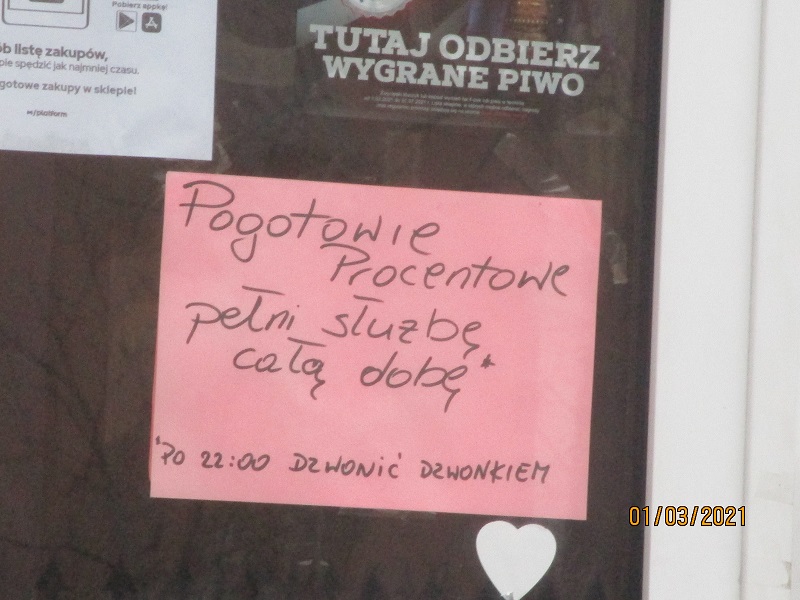 Pobierz appkę!
ób listę zakupów,
pie spędzić jak najmniej czasu.
gotowe zakupy w sklepie!
TUTAJ ODBIERZ
WYGRANE PIWO
Pogotowie
Procentowe
pełni służbę
całą dobę*
*PO 22:00 DZWONIĆ DZWONKIEM
01/03/2021